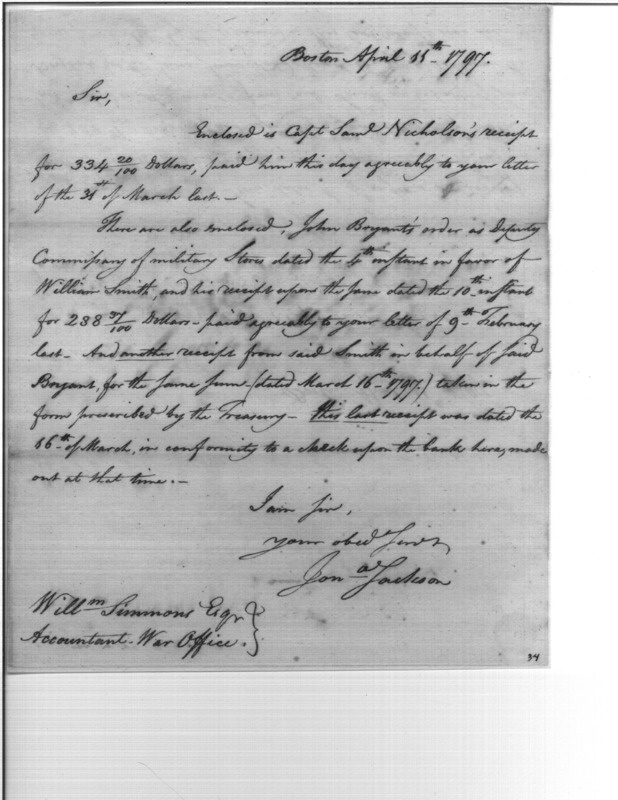 Boston April 11th 1797.
Sir,
Enclosed is Capt Saml Nicholson's receipt
for 334 20/100 Dollars, paid him this day agreeably to your letter
of the 31st of March last. –
There are also enclosed, John Bryant's order as Deputy
Commissary of military Stores dated the 4th instant in favor of
William Smith, and his receipt upon the same dated the 10th instant
for 288 /100 Dollars – paid agreeably to your letter of 9th February
last – And another receipt from said Smith in behalf of said
Bryant, for the same sum (dated March 16th 1797.) taken in the
form prescribed by the Treasury – this last receipt was dated the
16th of March, in conformity to a check upon the bank here, made
out at that time. –
I am Sir,
your obed Servt
Jona Jackson
Willm Simmons Esqr
Accountant War Office.
34